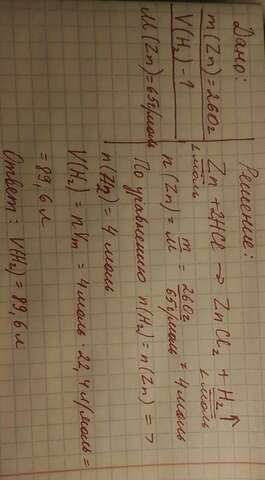 Дано:
m(Zn)=260г
V(H₂) - ?
M(Zn)=65г/моль
Решение:
Zn + 2HCl → ZnCl₂ + H₂↑
1 моль 1 моль
n(Zn) = m/M = 260г/65г/моль = 4 моль
По уравнению n(H₂) = n(Zn) =>
n(H₂) = 4 моль
V(H₂) = nVm = 4 моль · 22,4 л/моль =
= 89,6 л
Ответ: V(H₂) = 89,6 л